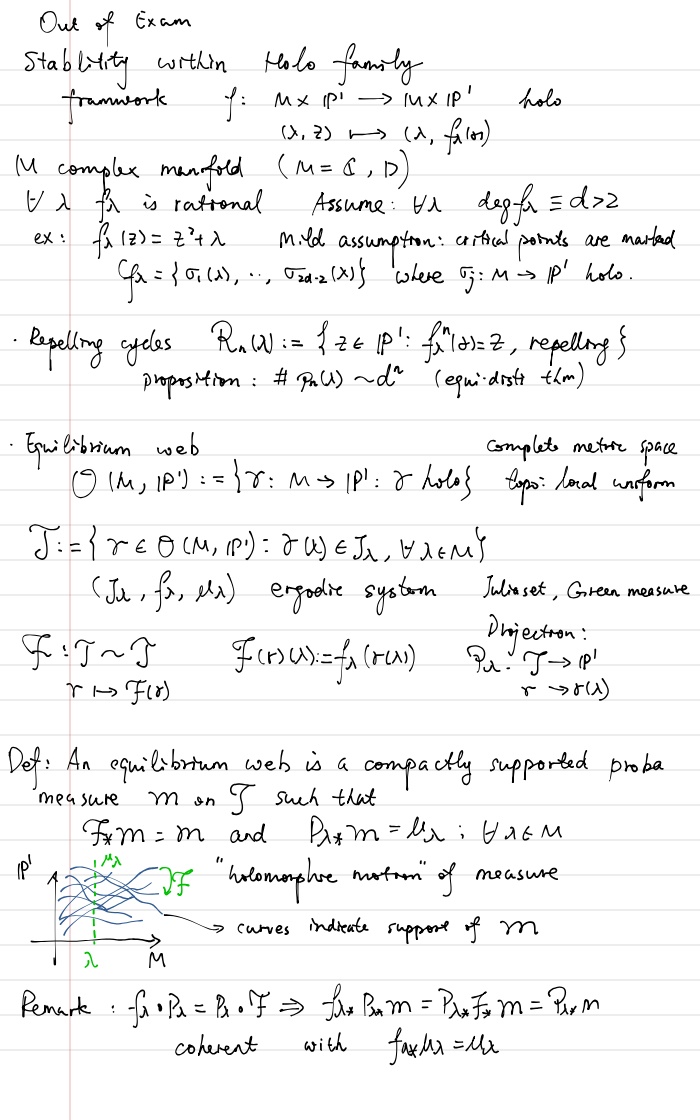 Out of Exam
Stablitity within Holo family
framwork f: M × ℙ¹ → M × ℙ¹ holo
(λ, z) ↦ (λ, f_λ(z))
M complex manifold (M = ℂ, D)
∀ λ f_λ is rational Assume: ∀λ deg f_λ ≡ d > 2
ex: f_λ(z) = z² + λ Mild assumption: critical points are marked
C_{f_λ} = {σ₁(λ), ··, σ_{2d-2}(λ)} where σ_j: M → ℙ¹ holo.
· Repelling cycles R_n(λ) := {z ∈ ℙ¹: f_λ^n(z) = z, repelling}
proposition: # R_n(λ) ~ d^n (equi-distri thm)
· Equilibrium web complete metric space
O(M, ℙ¹) := {γ: M → ℙ¹: γ holo} topo: local uniform
J := {γ ∈ O(M, ℙ¹): γ(λ) ∈ J_λ, ∀ λ ∈ M}
(J_λ, f_λ, μ_λ) ergodic system Julia set, Green measure
Projection:
F: J ~ J F(γ)(λ) := f_λ(γ(λ)) P_λ: J → ℙ¹
γ ↦ F(γ) γ → γ(λ)
Def: An equilibrium web is a compactly supported proba
measure m on J such that
F_* m = m and P_{λ*} m = μ_λ ; ∀ λ ∈ M
ℙ¹ μ_λ F "holomorphic motion" of measure
→ curves indicate support of m
λ M
Remark: f_λ ∘ P_λ = P_λ ∘ F ⇒ f_{λ*} P_{λ*} m = P_{λ*} F_* m = P_{λ*} m
coherent with f_{λ*} μ_λ = μ_λ